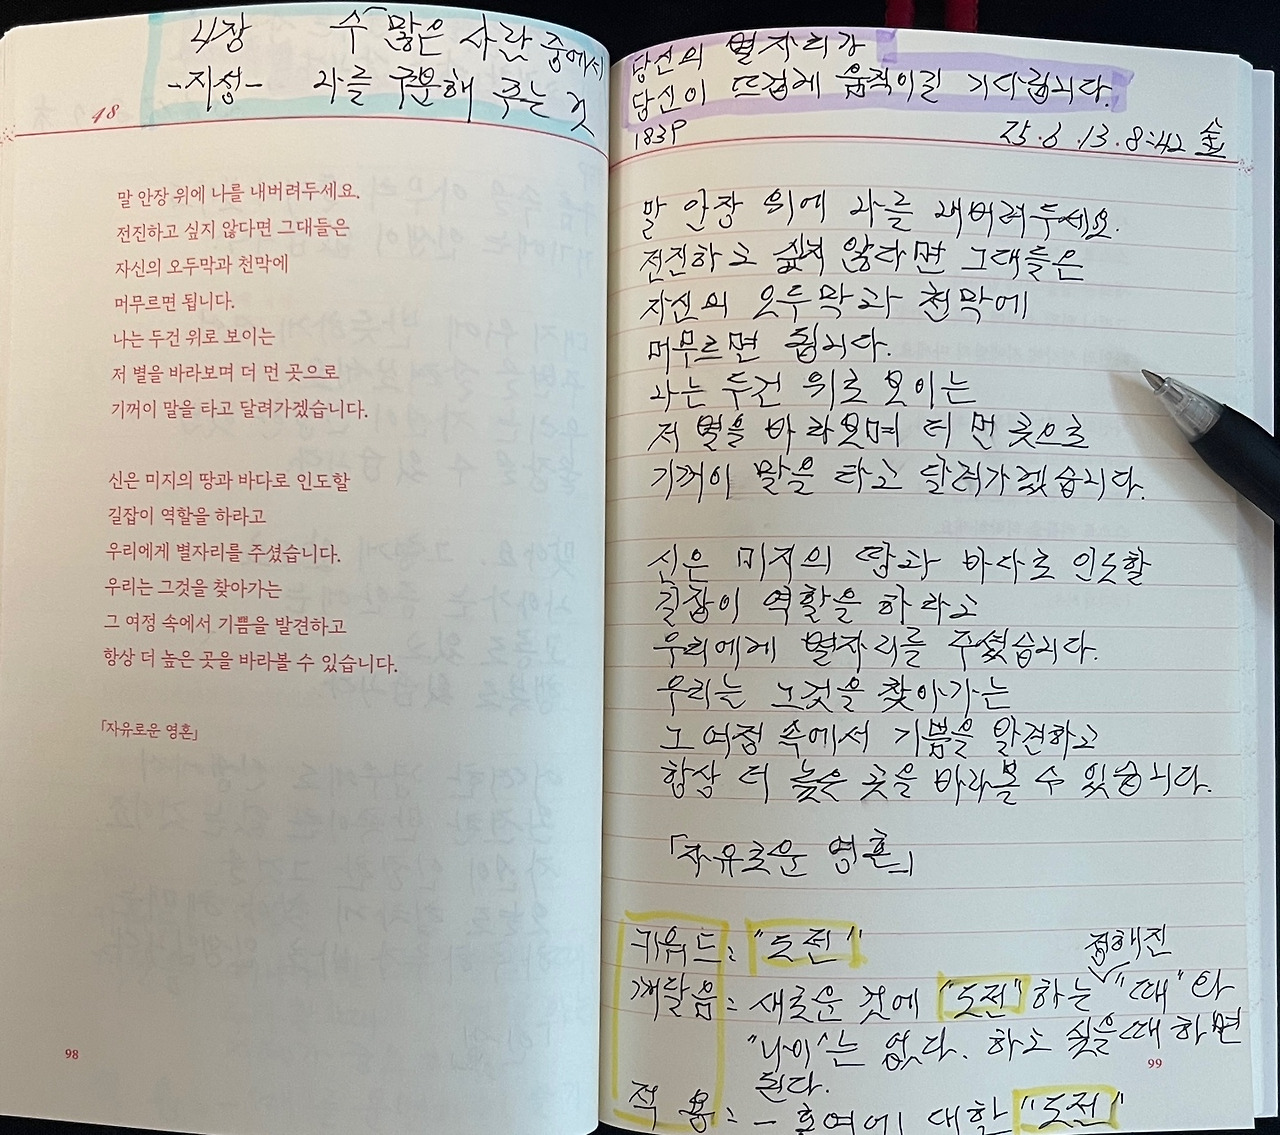 4장 수 많은 사람 중에서
-지성- 나를 구분해 주는 것
48
말 안장 위에 나를 내버려두세요.
전진하고 싶지 않다면 그대들은
자신의 오두막과 천막에
머무르면 됩니다.
나는 두건 위로 보이는
저 별을 바라보며 더 먼 곳으로
기꺼이 말을 타고 달려가겠습니다.
신은 미지의 땅과 바다로 인도할
길잡이 역할을 하라고
우리에게 별자리를 주셨습니다.
우리는 그것을 찾아가는
그 여정 속에서 기쁨을 발견하고
항상 더 높은 곳을 바라볼 수 있습니다.
「자유로운 영혼」
98
당신의 별자리가
당신이 뜨겁게 움직이길 기다립니다.
183P 25.6.13.8:42 金
말 안장 위에 나를 내버려두세요.
전진하고 싶지 않다면 그대들은
자신의 오두막과 천막에
머무르면 됩니다.
나는 두건 위로 보이는
저 별을 바라보며 더 먼 곳으로
기꺼이 말을 타고 달려가겠습니다.
신은 미지의 땅과 바다로 인도할
길잡이 역할을 하라고
우리에게 별자리를 주셨습니다.
우리는 그것을 찾아가는
그 여정 속에서 기쁨을 발견하고
항상 더 높은 곳을 바라볼 수 있습니다.
「자유로운 영혼」
키워드: "도전"
정해진
깨달음: 새로운 것에 "도전"하는 "때"와
"나이"는 없다. 하고 싶을때 하면
된다.
적용: - 에 대한 "도전"
99